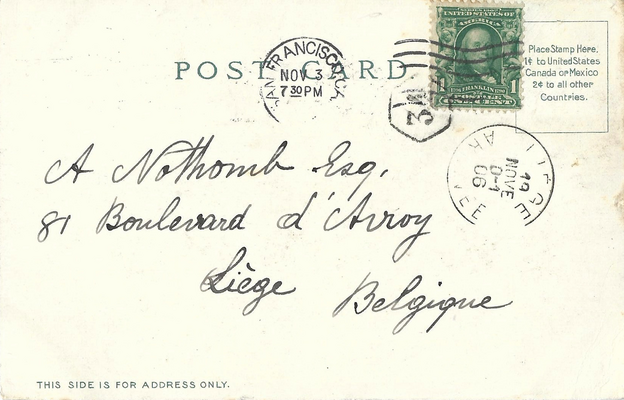 POST CARD
SAN FRANCISCO, CA.
NOV 3
7 30 PM
SERIES 1902
UNITED STATES OF
AMERICA
FRANKLIN
POSTAGE
1 1
ONE CENT
Place Stamp Here.
1¢ to United States
Canada or Mexico
2¢ to all other
Countries.
LIEGE
19
NOVE
D-1
06
A Nothomb Esq.
81 Boulevard d'Avroy
Liège Belgique
THIS SIDE IS FOR ADDRESS ONLY.